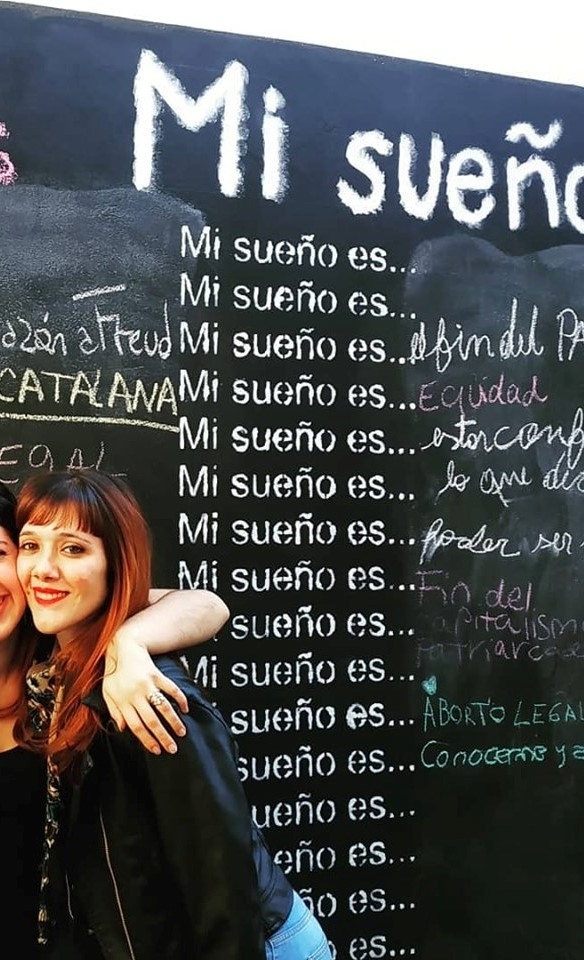 Mi sueño
Mi sueño es...
Mi sueño es...
Mi sueño es... el fin del PA
Mi sueño es... Equidad
Mi sueño es... estar conf
lo que
Mi sueño es...
Mi sueño es... Poder ser
Mi sueño es... Fin del
sueño es... capitalismo
patriarca
Mi sueño es...
sueño es... ABORTO LEGAL
sueño es... Conocerme y a
ueño es...
eño es...
ño es...
o es...
azón a Freud
CATALANA
EGAL